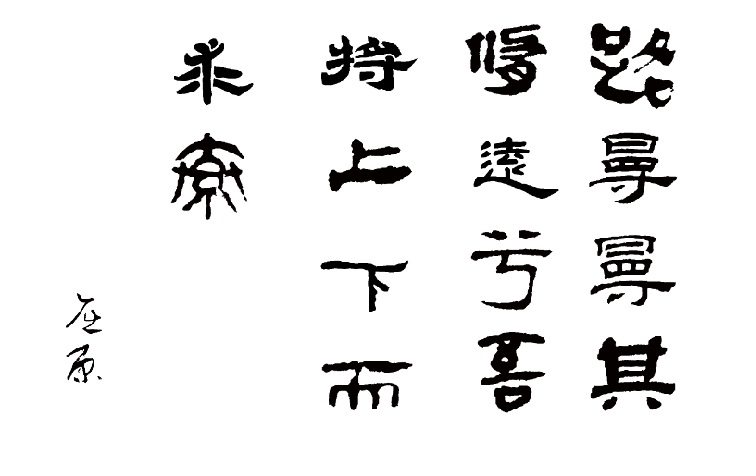 路曼曼其
修遠兮吾
將上下而
求索
屈原